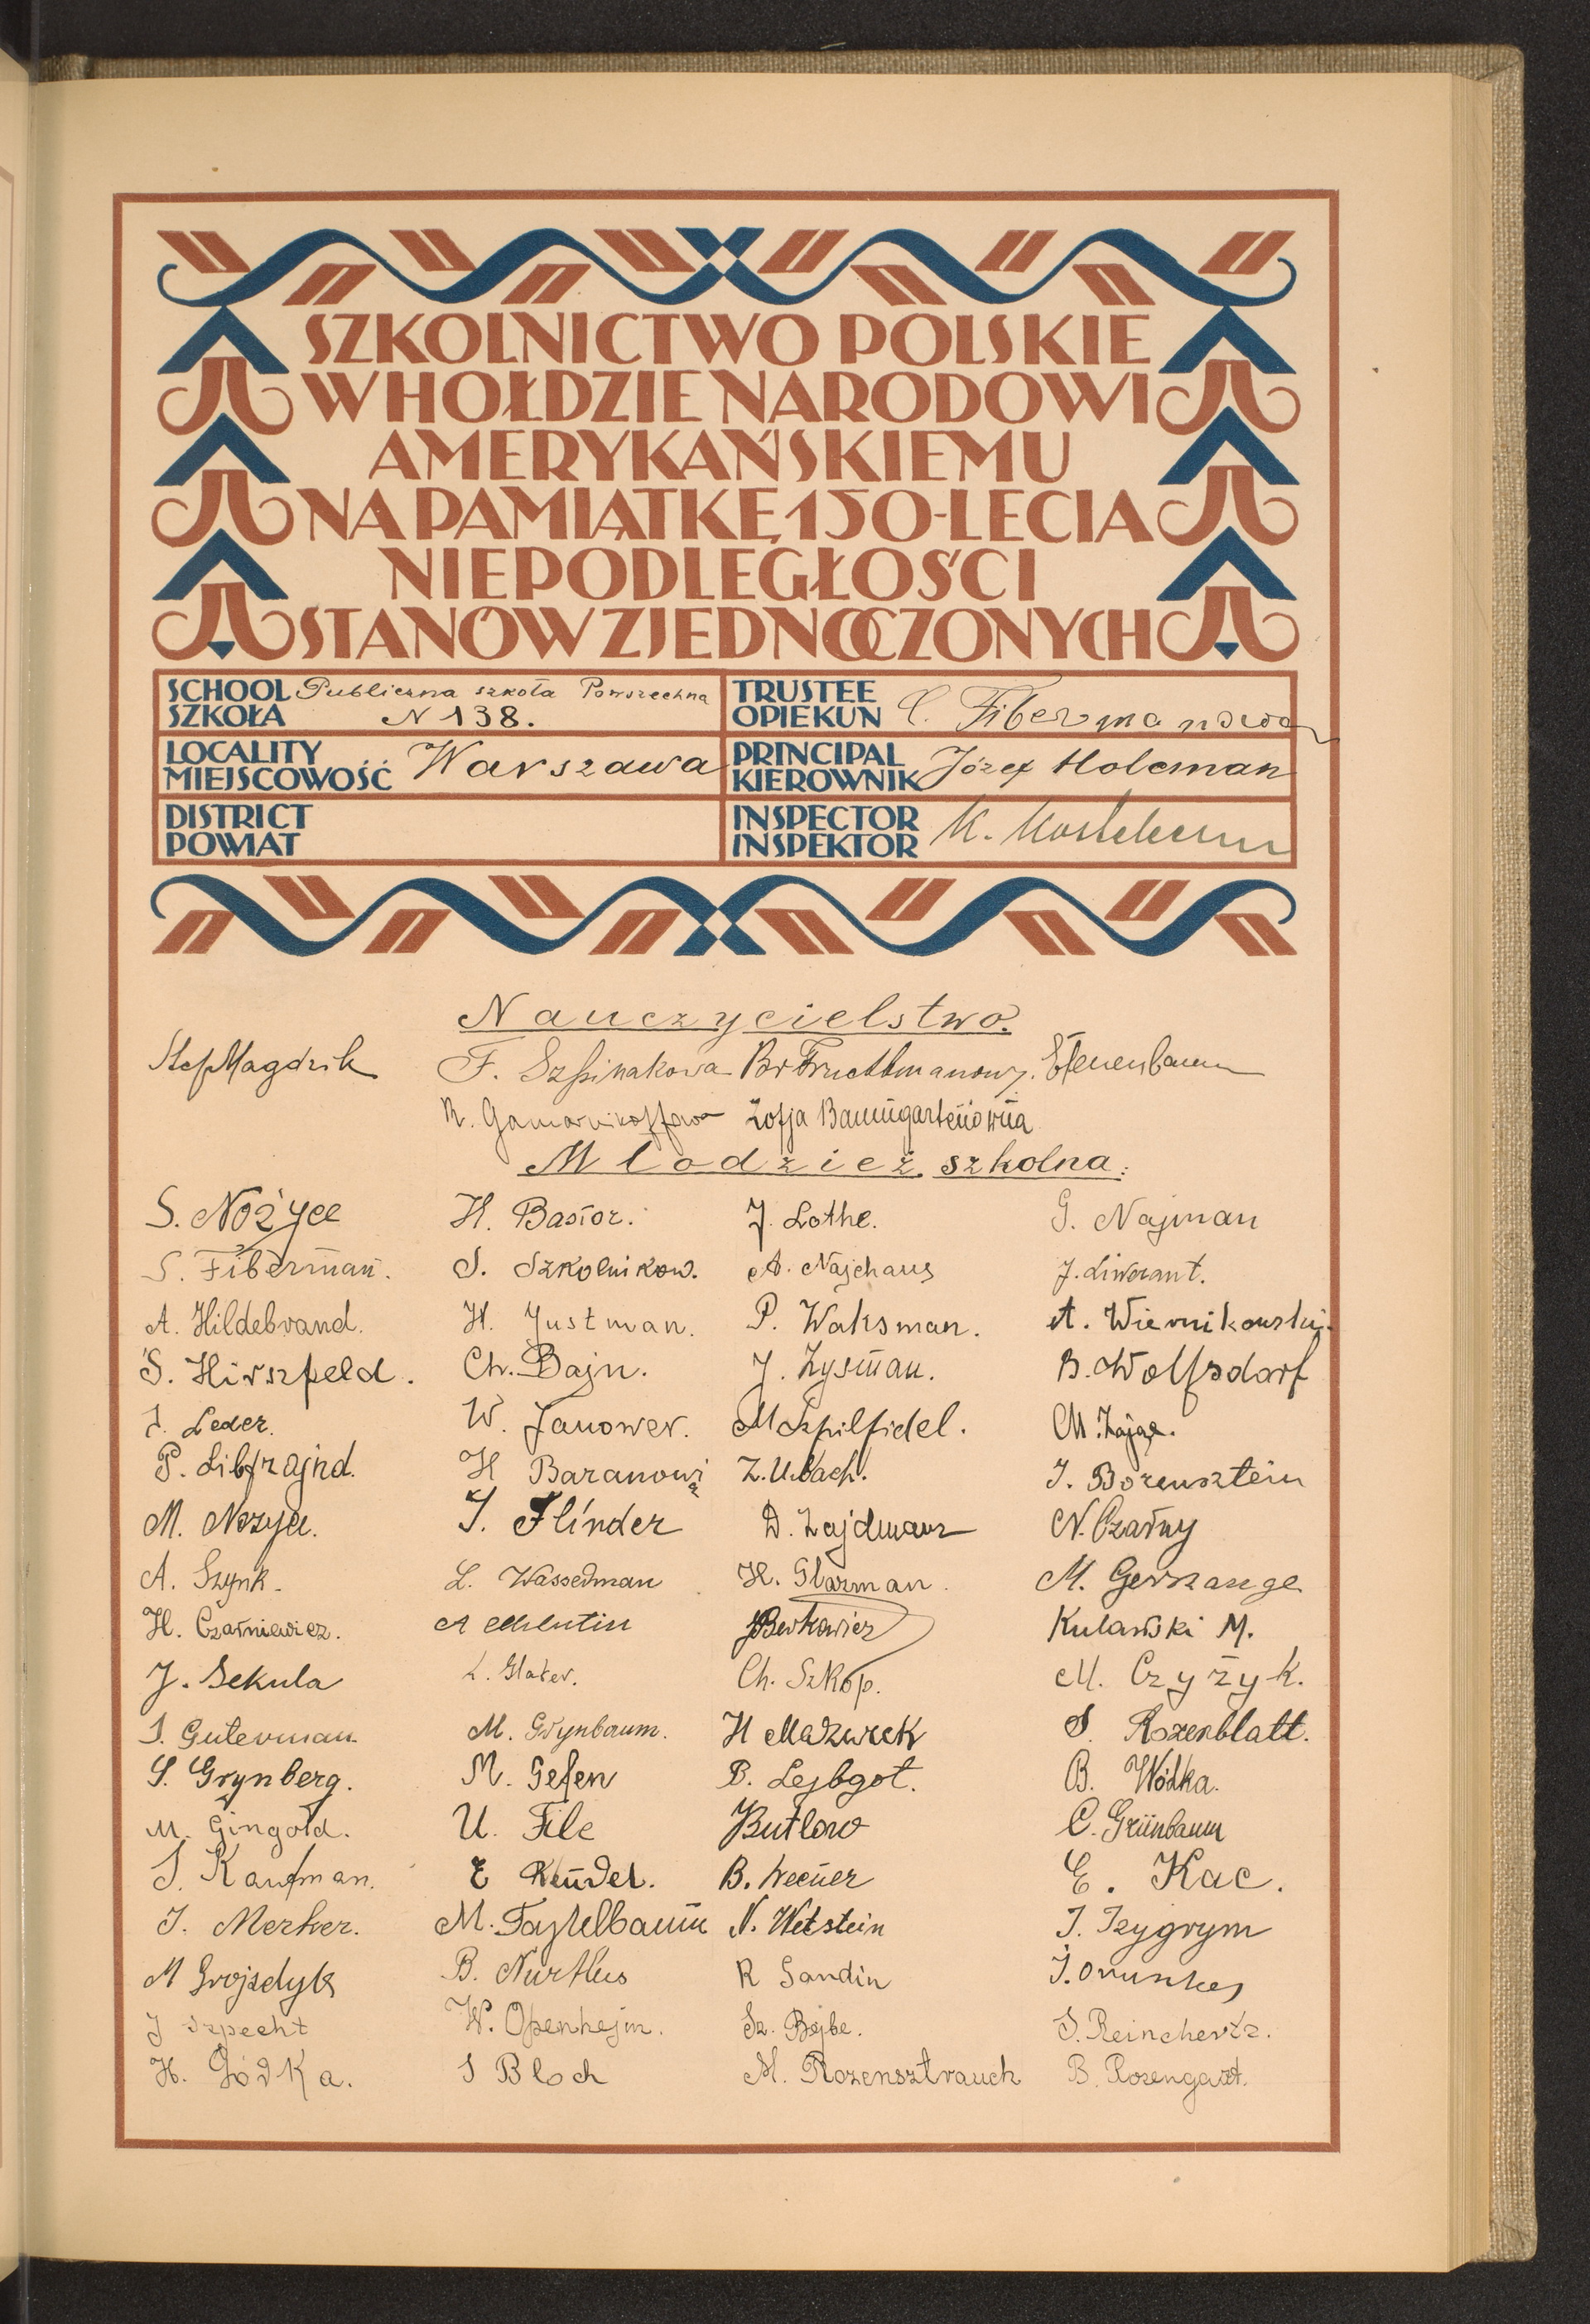 SZKOLNICTWO POLSKIE
W HOŁDZIE NARODOWI
AMERYKAŃSKIEMU
NA PAMIĄTKĘ 150-LECIA
NIEPODLEGŁOŚCI
STANÓW ZJEDNOCZONYCH
SCHOOL Publiczna szkoła Powszechna
SZKOŁA N 138.
TRUSTEE
OPIEKUN C. Fibermanowa
LOCALITY
MIEJSCOWOŚĆ Warszawa
PRINCIPAL
KIEROWNIK Józef Holcman
DISTRICT
POWIAT
INSPECTOR
INSPEKTOR K.
Nauczycielstwo.
Stef Magdzik F. Szpinakowa Br Fruchtmanowa.
R. Zofja Baumgartenówna
Młodzież szkolna:
S. Nożyce H. Basior. J. Lothe. G. Najman
S. Fiberman. S. Szkolnikow. A. Najchaus J. Liwerant.
A. Hildebrand. H. Justman. P. Waksman. A. Wiernikowski.
S. Hirszfeld. Ch. Bajn. J. Zysman. B. Wolfsdorf
J. Leder. W. Janower. M Szpilfidel. M. Zając.
P. Libfrajnd. H Baranowi Z. Urbach. J. Borensztein
M. Nożyce. J. Flinder D. Zajdman N. Czarny
A. Szynk. L. Wasserman H. Glazman. M. Gerszange
H. Czarniewicz. A Milutin J Berkowicz Kulawski M.
J. Sekula L. Glater. Ch. Szkop. M. Czyżyk.
S. Guterman. M. Grynbaum. H Mazurek S. Rozenblatt.
S. Grynberg. M. Gefen B. Lejbgot. B. Wódka.
M. Gingold. U. File Butlow C. Grünbaum
S. Kaufman. E Kendel. B. Wecner E. Kac.
J. Merker. M. Tajtelbaum N. Wetstein J. Izygrym
M Grojsdyk B. Nurthus R Sandin J.
J Szpecht W. Openhejm. Sz. Bejbe. S. Reinchertz.
H. Łódka. S Bloch M. Rozensztrauch B. Rosengart.